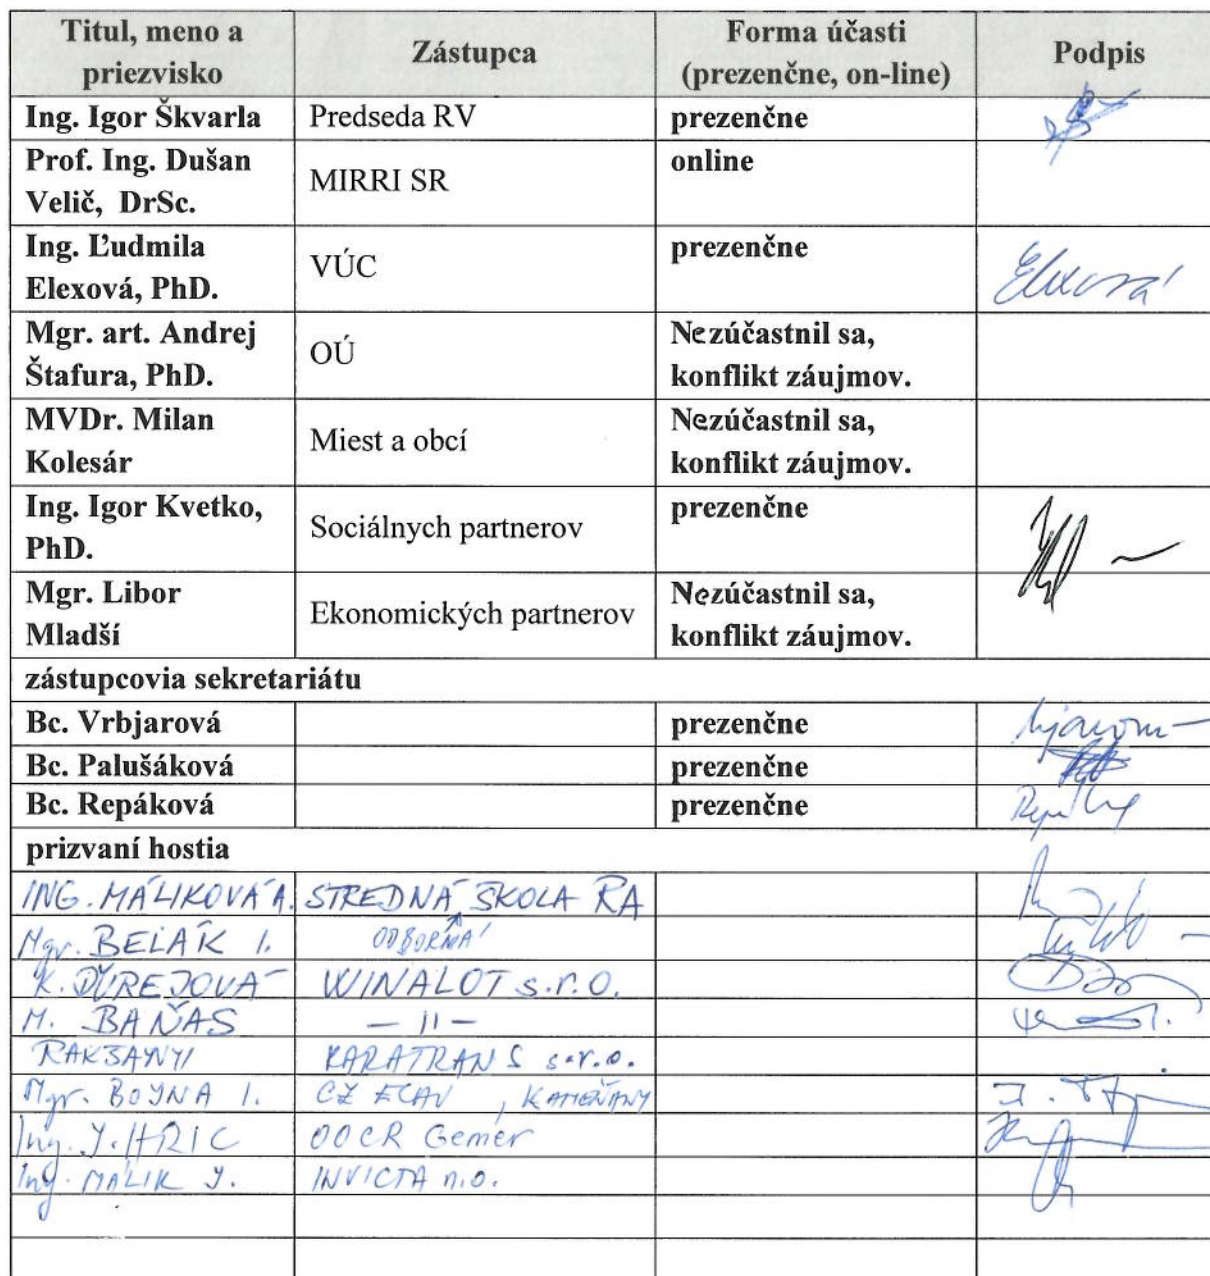 Titul, meno a priezvisko Zástupca Forma účasti (prezenčne, on-line) Podpis
Ing. Igor Škvarla Predseda RV prezenčne
Prof. Ing. Dušan Velič, DrSc. MIRRI SR online
Ing. Ľudmila Elexová, PhD. VÚC prezenčne Elexová
Mgr. art. Andrej Štafura, PhD. OÚ Nezúčastnil sa, konflikt záujmov.
MVDr. Milan Kolesár Miest a obcí Nezúčastnil sa, konflikt záujmov.
Ing. Igor Kvetko, PhD. Sociálnych partnerov prezenčne
Mgr. Libor Mladší Ekonomických partnerov Nezúčastnil sa, konflikt záujmov.
zástupcovia sekretariátu
Bc. Vrbjarová prezenčne
Bc. Palušáková prezenčne
Bc. Repáková prezenčne
prizvaní hostia
ING. MÁLIKOVÁ A. STREDNÁ ŠKOLA RA
Mgr. BELÁK I. ODBORNÁ
K. ĎUREJOVÁ WINALOT s.r.o.
M. BAŇAS — 11 —
KARATRANS s.r.o.
Mgr. BOJNA I. CZ ECAV, KAMEŇANY
Ing. J. HRIC OOCR Gemer
Ing. MÁLIK J. INVICTA n.o.